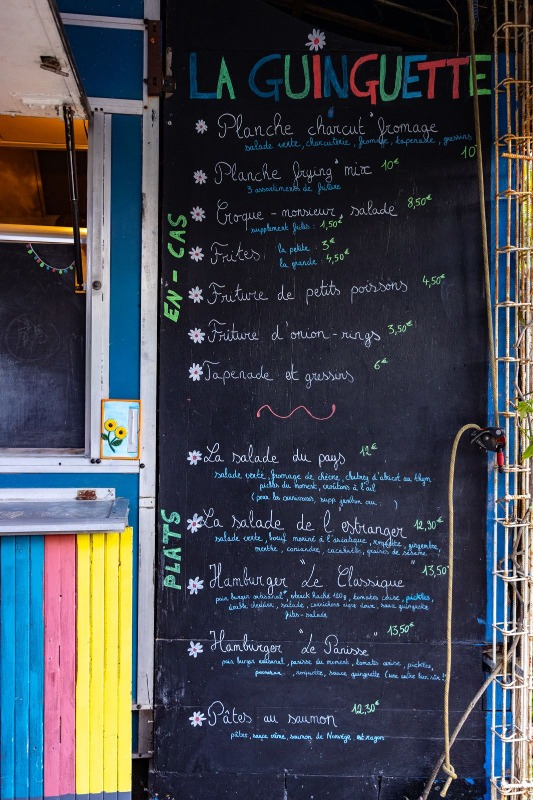 LA GUINGUETTE
EN-CAS
Planche charcut' fromage
salade verte, charcuterie, fromage, tapenade, gressins
10€
Planche frying' mix 10€
3 assortiments de friture
Croque-monsieur, salade 8,50€
supplément frites : 1,50€
Frites : la petite : 3€
la grande : 4,50€
Friture de petits poissons 4,50€
Friture d'onion-rings 3,50€
Tapenade et gressins 6€
PLATS
La salade du pays 12€
salade verte, fromage de chèvre, chutney d'abricot au thym
pickles du moment, croûtons à l'ail
(pour les carnivores, supp. jambon cru )
La salade de l'estranger 12,30€
salade verte, bœuf mariné à l'asiatique, roquette, gingembre,
menthe, coriandre, cacahuète, graines de sésame.
Hamburger "Le Classique" 13,50€
pain burger artisanal, steack haché 180g, tomates cerise, pickles,
double cheddar, salade, cornichons aigre doux, sauce guinguette
frites-salade
Hamburger "Le Panisse" 13,50€
pain burger artisanal, panisse du moment, tomates cerise, pickles,
roquette, sauce guinguette
Pâtes au saumon 12,30€
pâtes, sauce crème, saumon de Norvège, estragon